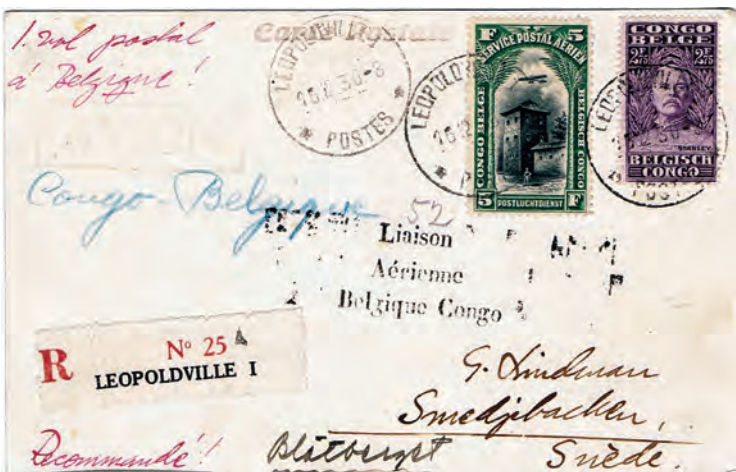 1. vol postal
á Belgique!
Carte Postale
LEOPOLDVILLE
16.12.30-8
* POSTES *
F 5
SERVICE POSTAL AÉRIEN
CONGO BELGE
BELGISCH CONGO
5 POSTLUCHTDIENST F
CONGO
BELGE
STANLEY
BELGISCH
CONGO
Congo-Belgique
52
Liaison
Aérienne
Belgique Congo
R
Nº 25
LEOPOLDVILLE I
G. Lindman
Smedjebacken,
Blötberget Suède.
Recommandé!